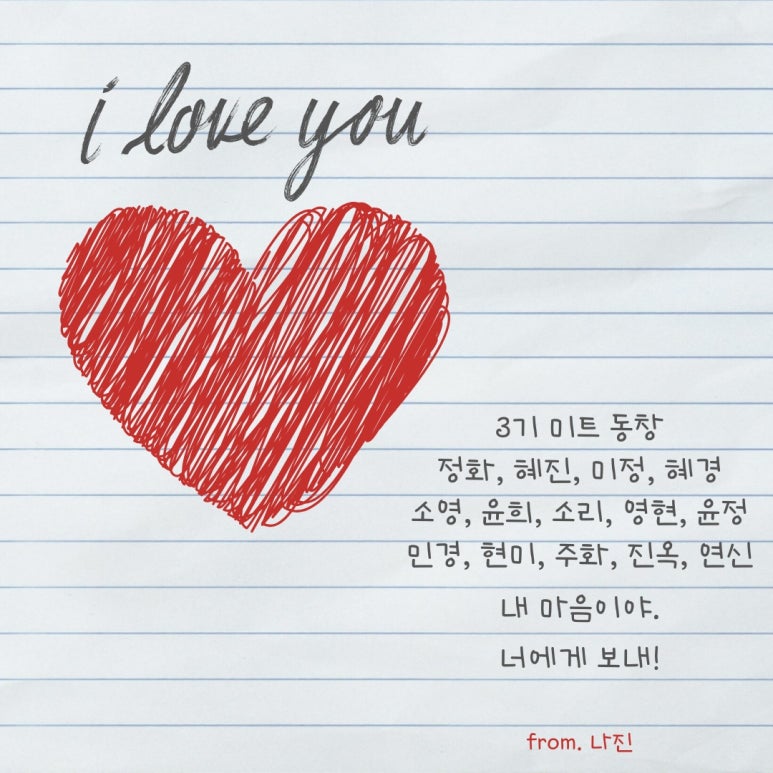 i love you
3기 미트 동창
정화, 혜진, 미정, 혜경
소영, 윤희, 소리, 영현, 윤정
민경, 현미, 주화, 진옥, 연신
내 마음이야.
너에게 보내!
from. 나진